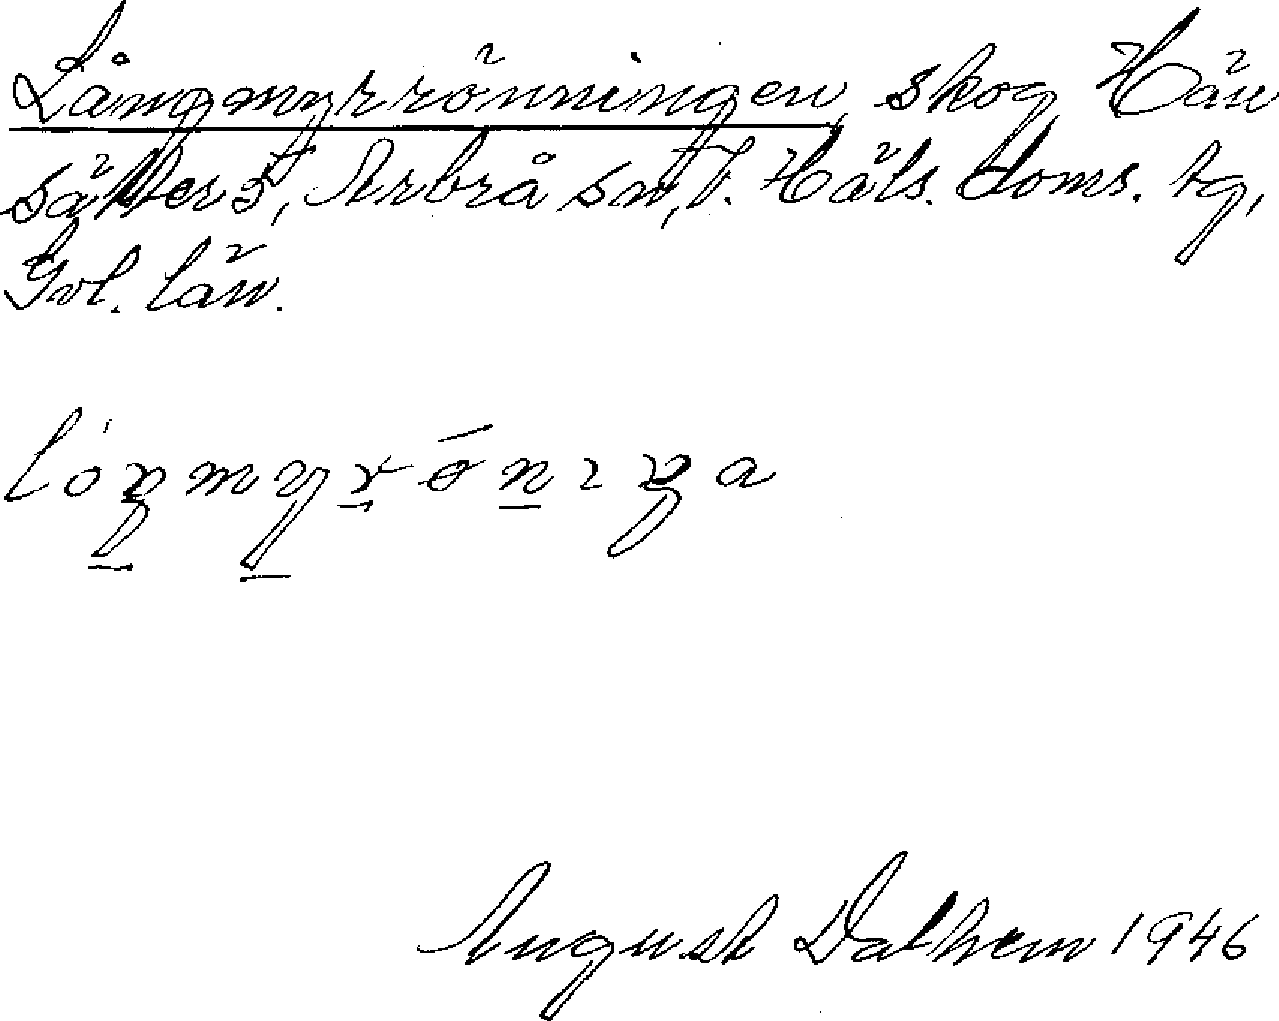 Långmyrrönningen, skog, Hän
sätter 5, Arbrå sn, V. Häls. doms. tg,
Gvl. län.
lóŋmyrǿnıŋa
August Dalhem 1946